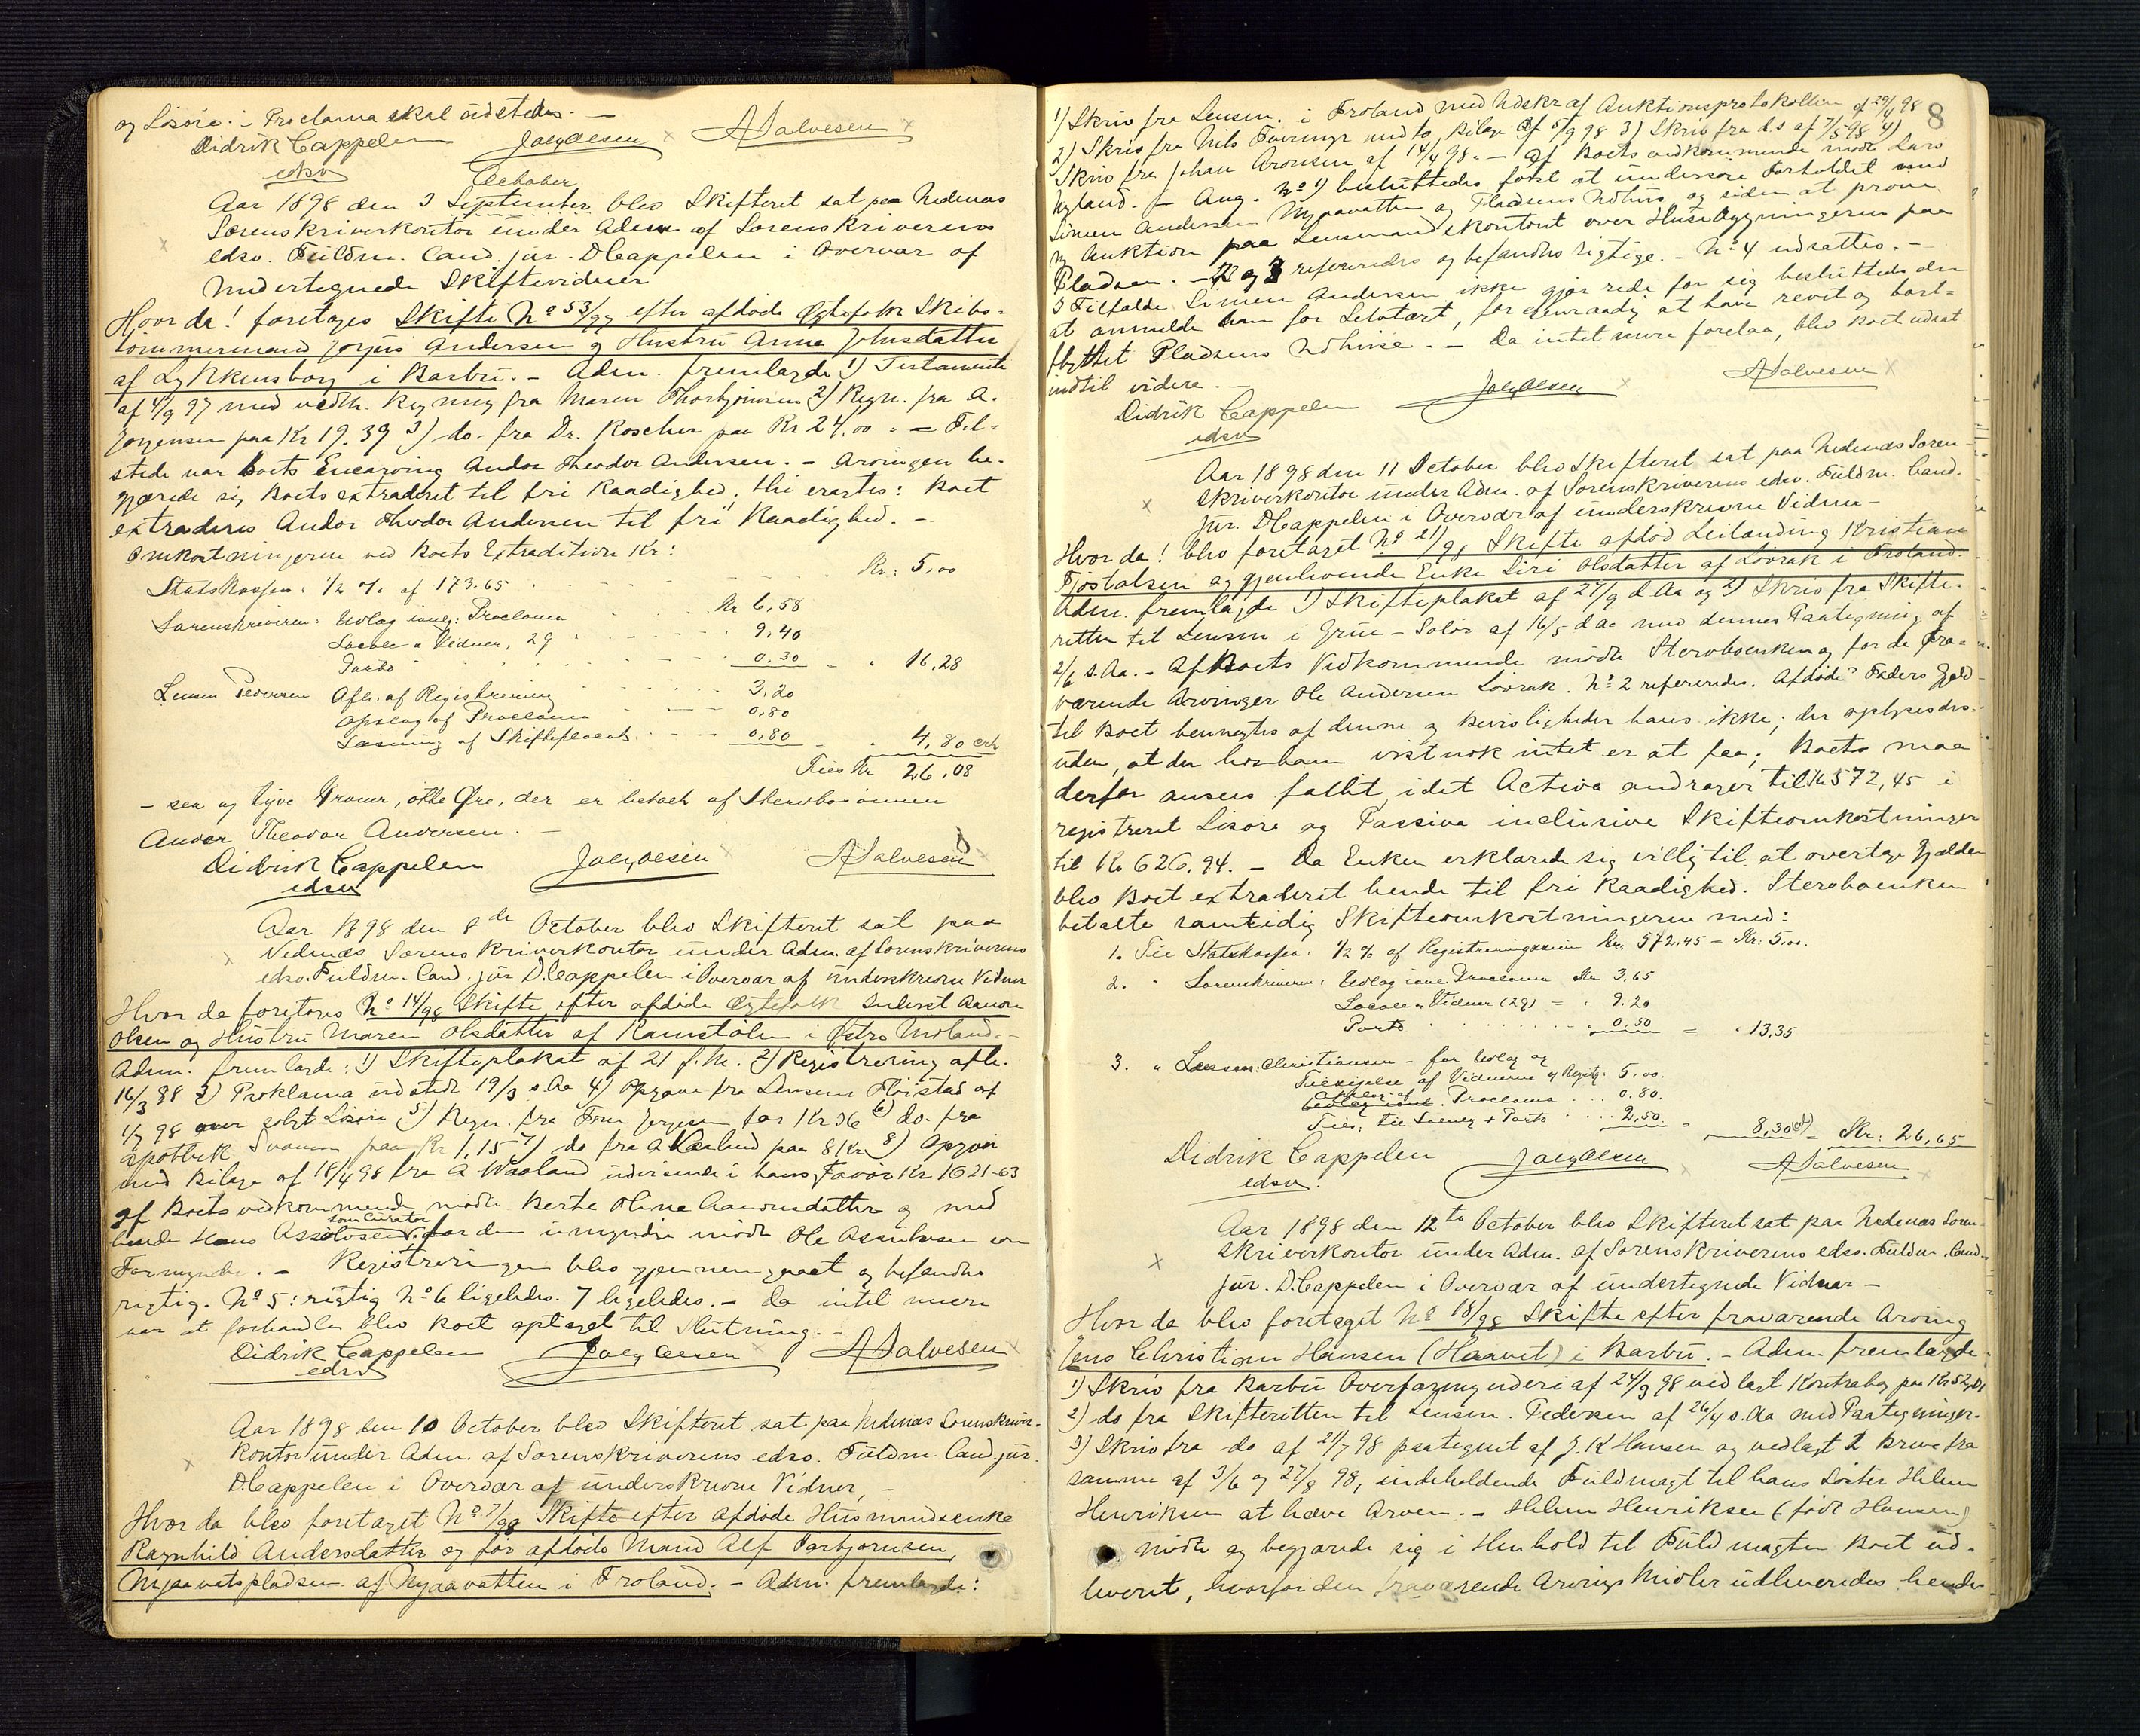 og Løsøre. i Proclama skal udstedes. —
Didrik Cappelen Joh Olsen A Salvesen
edsv
October
Aar 1898 den 3 September blev Skifteret sat paa Nedenæs
Sorenskriverkontor under Adm. af Sorenskriverens
edsv. Fuldm. Cand. jur. D Cappelen i Overvær af
undertegnede Skiftevidner
Hvor da! foretoges Skifte No 53/97 efter afdøde Ægtefolk Skibs-
tømmermand Jørgen Andersen og Hustru Anne Johnsdatter
af Lykkensborg i Barbu. – Adm. fremlagde 1) Testamente
af 4/9 97 med vedh. Regning fra Maren Thorbjørnsen 2) Regn. fra A.
Jørgensen paa Kr 19.39 3) do. fra Dr. Roscher paa Kr 24,00. – Til-
stede var Boets Enearving Andor Theodor Andersen. – Arvingen be-
gjærede sig Boets extraderet til fri Raadighed, thi eragtes: Boet
extraderes Andor Theodor Andersen til fri Raadighed. –
Omkostningerne ved Boets Extradition Kr:
Statskassen: 1/2 % af 173.65 Kr: 5,00
Sorenskriveren: Udlæg ang: Proclama Kr 6,58
Locale & Vidner, 2g 9,40
Porto 0.30 – " 16,28
Lensm Pedersen Afh. af Registrering 3,20
Opslag af Proclama 0,80
Læsning af Skifteplacat 0,80 – " 4,80
Tils Kr 26,08
– sex og tyve Kroner, otte Øre, der er betalt af Stervbosønnen
Andor Theodor Andersen. –
Didrik Cappelen Joh Olsen A Salvesen
edsv
Aar 1898 den 8de October blev Skifteret sat paa
Nedenæs Sorenskriverkontor under Adm. af Sorenskriverens
edsv. Fuldm. Cand. jur D. Cappelen i Overvær af underskrevne Vidner
Hvor da foretoges No 14/98 Skifte efter afdøde Ægtefolk Aanon
Olsen og Hustru Maren Olsdatter af Ramstølen i Østre Moland. –
Adm. fremlagde: 1) Skifteplakat af 21 f. M. 2) Registrering afh.
16/3 98 3) Proklama udstedt 19/3 s. Aa 4) Opgave fra Lensm Høistad af
1/7 98 over solgt Løsøre 5) Regn. fra Tom Jørgensen for Kr 36 6) do. fra
Apothek Svanen paa Kr 1,15 7) do fra A Vaaland paa 8 Kr 8) Opgjør
med Bilage af 18/4 98 fra A Waaland udvisende i hans Favør Kr 1621-63
Af Boets vedkommende mødte Berte Oline Aanonsdatter og med
som Curator
hende Hans Assulvsen, for den umyndige mødte Ole Assulvsen som
Formynder. – Registreringen blev gjennemgaaet og befandtes
rigtig. No 5: rigtig No 6 ligeledes. 7 ligeledes. – Da intet mere
var at forhandle blev Boet optaget til Slutning. –
Didrik Cappelen Joh Olsen A Salvesen
edsv
Aar 1898 den 10 October blev Skifteret sat paa Nedenæs Sorenskriver-
kontor under Adm. af Sorenskriverens edsv. Fuldm. Cand. jur.
D Cappelen i Overvær af underskrevne Vidner, –
Hvor da blev foretaget No 7/98 Skifte efter afdøde Husmandsenke
Ragnhild Andersdatter og før afdøde Mand Alf Torbjørnsen,
Mjaavatspladsen af Mjaavatten i Froland. – Adm. fremlagde:
8
1) Skriv fra Lensm. i Froland med Udskr af Auktionsprotokollen af 29/4 98
2) Skriv fra Nils med to Bilage af 5/9 98 3) Skriv fra ds af 7/5 98 4)
Skriv fra Johan Aronsen af 14/4 98. – Af Boets vedkommende mødte Lars
Nyland. – Ang. No 1) besluttedes først at undersøge Forholdet med
Simen Andersen Mjaavatten og Pladsens Udhus, og siden at prøve
ny Auktion paa Lensmandskontoret over Husebygningerne paa
Pladsen. – 2 og 3 refereredes og befandtes rigtige. – No 4 udsattes. –
I Tilfælde Simen Andersen ikke gjør rede for sig besluttedes den
at anmelde ham for Selvtægt, for egenraadig at have revet og bort-
flyttet Pladsens Udhuse. – Da intet mere forelaa, blev Boet udsat
indtil videre. –
Didrik Cappelen Joh Olsen A Salvesen
edsv
Aar 1898 den 11 October blev Skifteret sat paa Nedenæs Soren-
skriverkontor under Adm. af Sorenskriverens edsv. Fuldm. Cand.
jur. D Cappelen i Overvær af underskrevne Vidner –
Hvor da! blev foretaget No 21/98 Skifte afdød Leilending Kristian
Fjøstølsen og gjenlevende Enke Siri Olsdatter af Løvrak i Froland.
Adm. fremlagde 1) Skifteplakat af 27/9 d. Aa og 2) Skriv fra Skifte-
retten til Lensm i Grue – Solør af 16/5 d Aa med dennes Paategning af
2/6 s. Aa. – Af Boets Vedkommende mødte Stervboenken og for de fra-
værende Arvinger Ole Andersen Løvrak. No 2 refereredes. Afdødes Faders Gjeld
til Boet benegtes af denne og Bevisligheder haves ikke; der oplyses des-
uden, at der hos ham vistnok intet er at faa; Boets maa
derfor ansees fallit, idet Activa andrager til Kr 572,45 i
registreret Løsøre og Passiva inclusive Skifteomkostninger
til Kr 626.94. – Da Enken erklærede sig villig til at overtage Gjælden
blev Boet extraderet hende til fri Raadighed. Stervboenken
betalte samtidig Skifteomkostningerne med:
1. Til Statskassen: 1/2 % af Registreringssum Kr. 572.45 – Kr: 5,00.
2. " Sorenskriveren: Udlæg Proclama Kr 3.65
Locale & Vidner (2g) = " 9.20
Porto " 0,50 = " 13,35
3. " Lensm: Christiansen – for Udlæg og
Tilsigelse af Vidnerne v Registr: 5,00.
Opslag af Proclama 0.80.
Porto 2,50. = 8,30 – Kr: 26,65
Didrik Cappelen Joh Olsen A Salvesen
edsv.
Aar 1898 den 12te October blev Skifteret sat paa Nedenæs Soren-
skriverkontor under Adm. af Sorenskriverens edsv. Fuldm. Cand.
jur. D. Cappelen i Overvær af undertegnede Vidner –
Hvor da blev foretaget No 18/98 Skifte efter fraværende Arving
Jens Christian Hansen (Haavet) i Barbu. – Adm. fremlagde.
1) Skriv fra Barbu Overformynderi af 24/3 98 vedlagt Kontrabog paa Kr 52,01
2) do fra Skifteretten til Lensm. Pedersen af 26/4 s. Aa med Paategninger.
3) Skriv fra do af 21/7 98 paategnet af J. K Hansen og vedlagt 2 Breve fra
samme af 3/6 og 27/8 98, indeholdende Fuldmagt til hans Søster Helene
Henriksen at hæve Arven. – Helene Henriksen (født Hansen)
mødte og begjærede sig i Henhold til Fuldmagten Boet ud-
leveret, hvorfor den fraværende Arvings Midler udleveredes hende